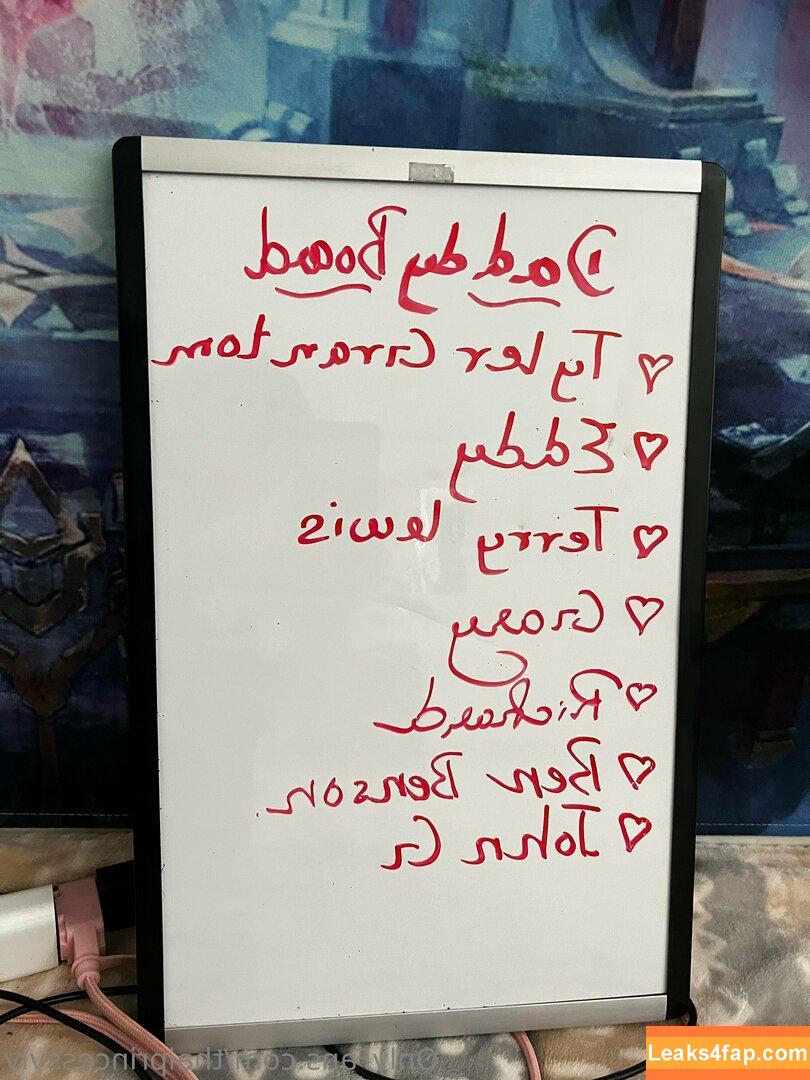 Daddy Board
♡ Tyler Grantom
♡ Eddy
♡ Terry lewis
♡ Gray
♡ Richard
♡ Ben Benson.
♡ John G
Onlyfans.com/thaiprincessviv
Leaks4fap.com